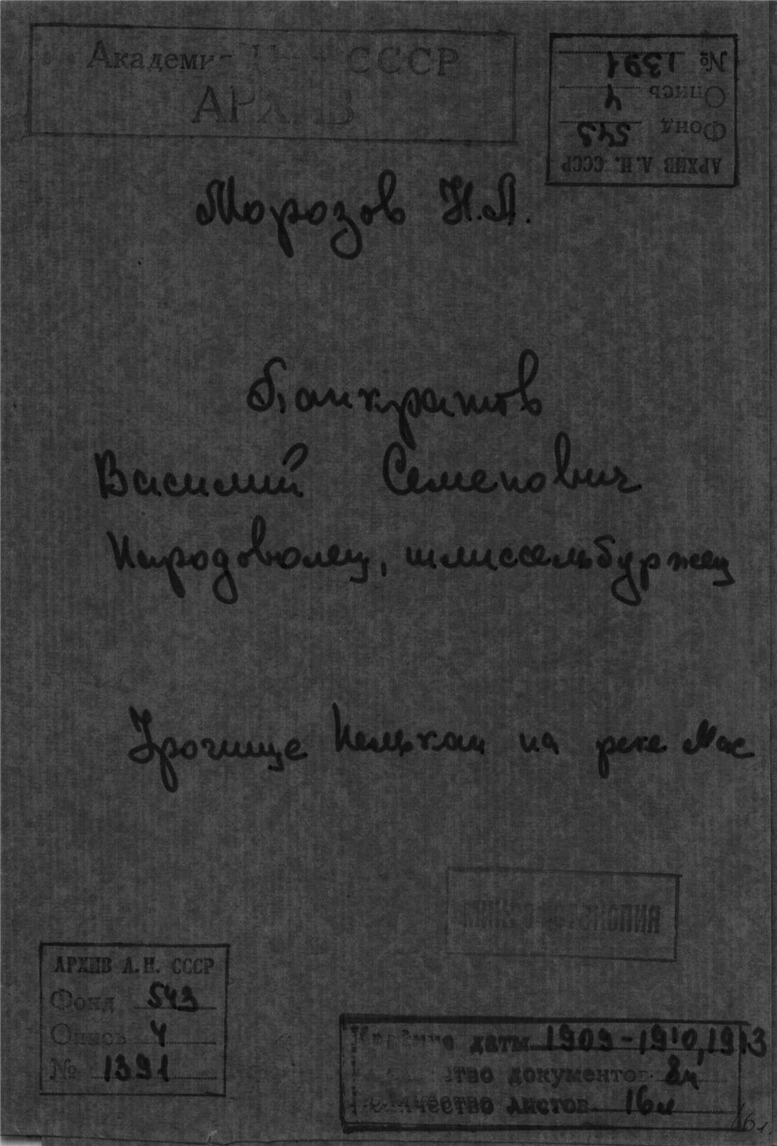 Академия СССР
АРХИВ
№ 1391
Опись 4
Фонд 543
АРХИВ А.Н. СССР
Морозов Н.А.
Панкратов
Василий Семенович
Народоволец, шлиссельбуржец
Урочище Нелькан на реке Мае
АРХИВ А.Н. СССР
Фонд 543
Опись 4
№ 1391
Крайние даты 1909-1910, 1913
документов 8
Количество листов 16л